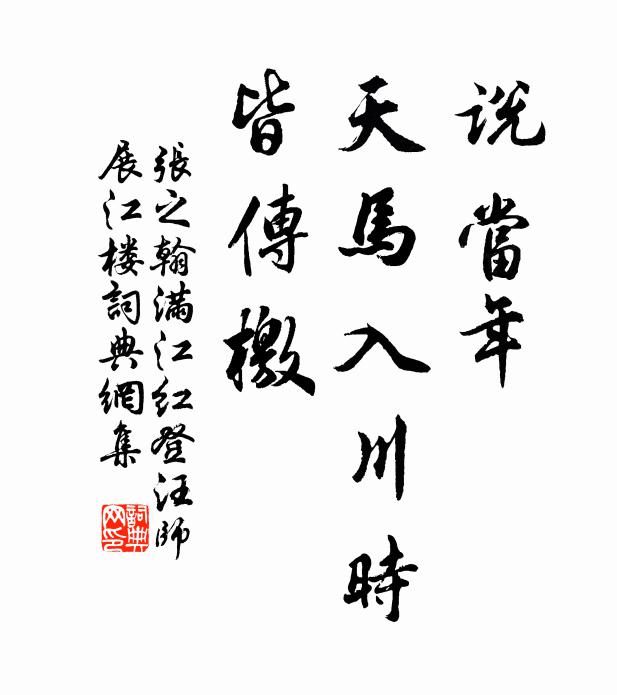 說當年
天馬入川時
皆傳檄
張之翰滿江紅登汪師
展江楼詞典網集
詞典
网印